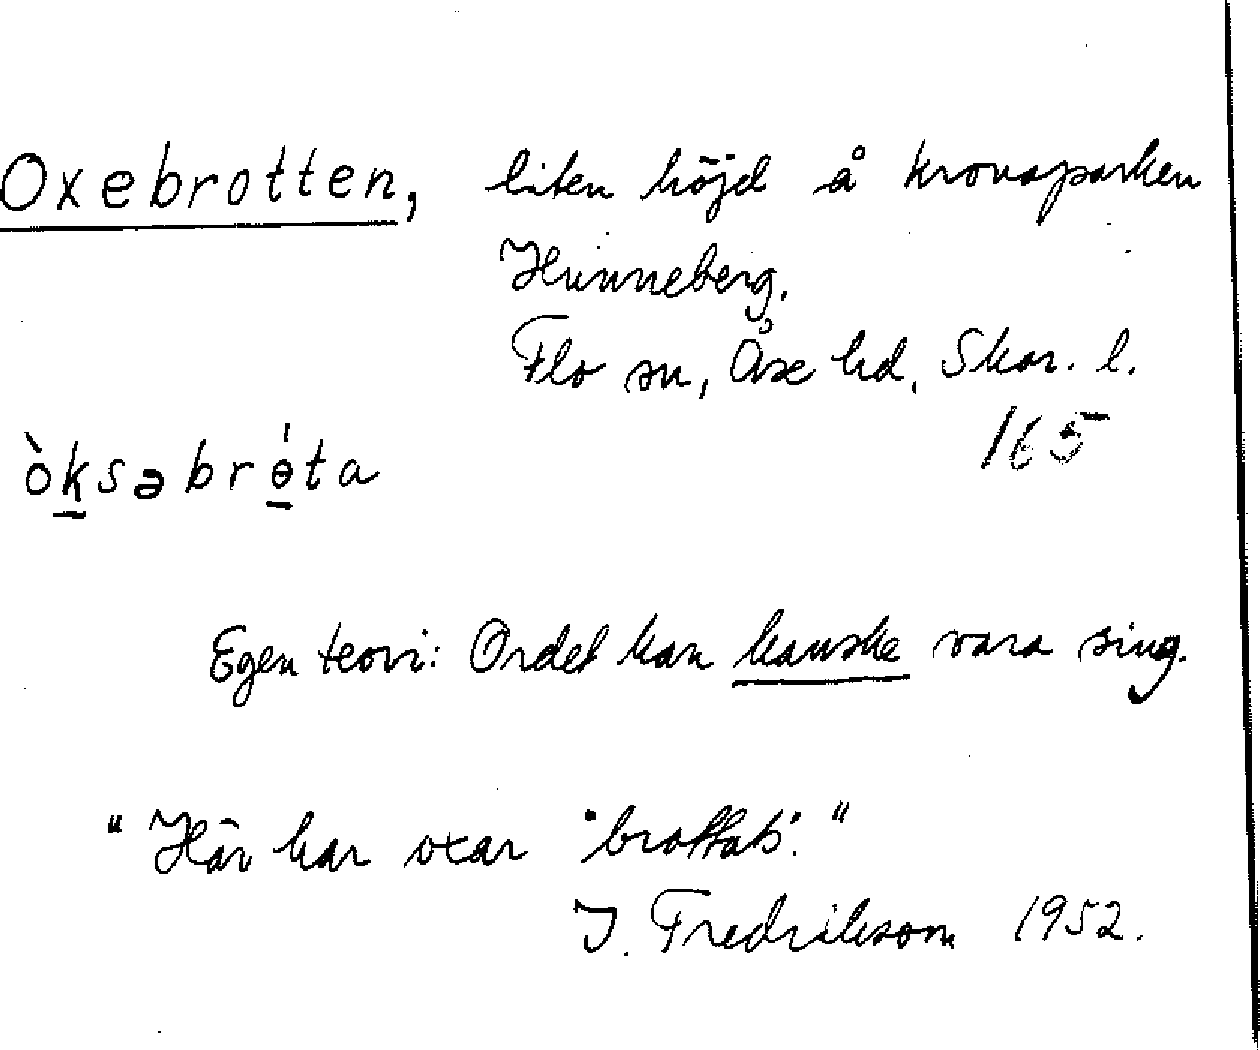 Oxebrotten, liten höjd å kronoparken
Hunneberg.
Flo sn, Åse hd, Skar. l.
165
òksəbrɵ́ta
Egen teori: Ordet kan kanske vara sing.
"Här har oxar 'brottats'."
J. Fredriksson 1952.